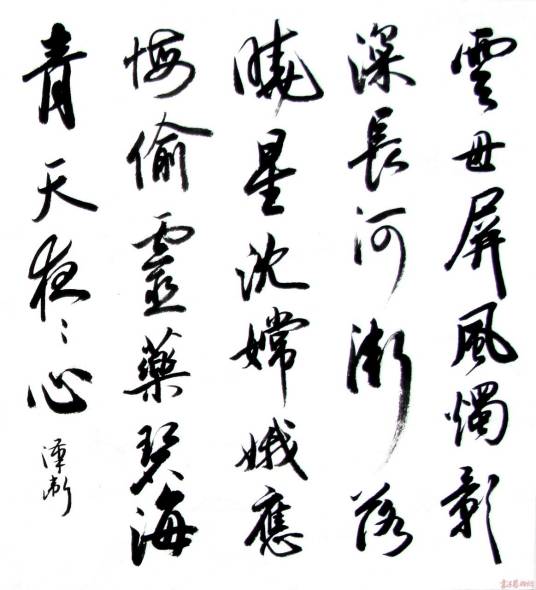 雲母屏風燭影
深長河漸落
曉星沈嫦娥應
悔偷靈藥碧海
青天夜々心